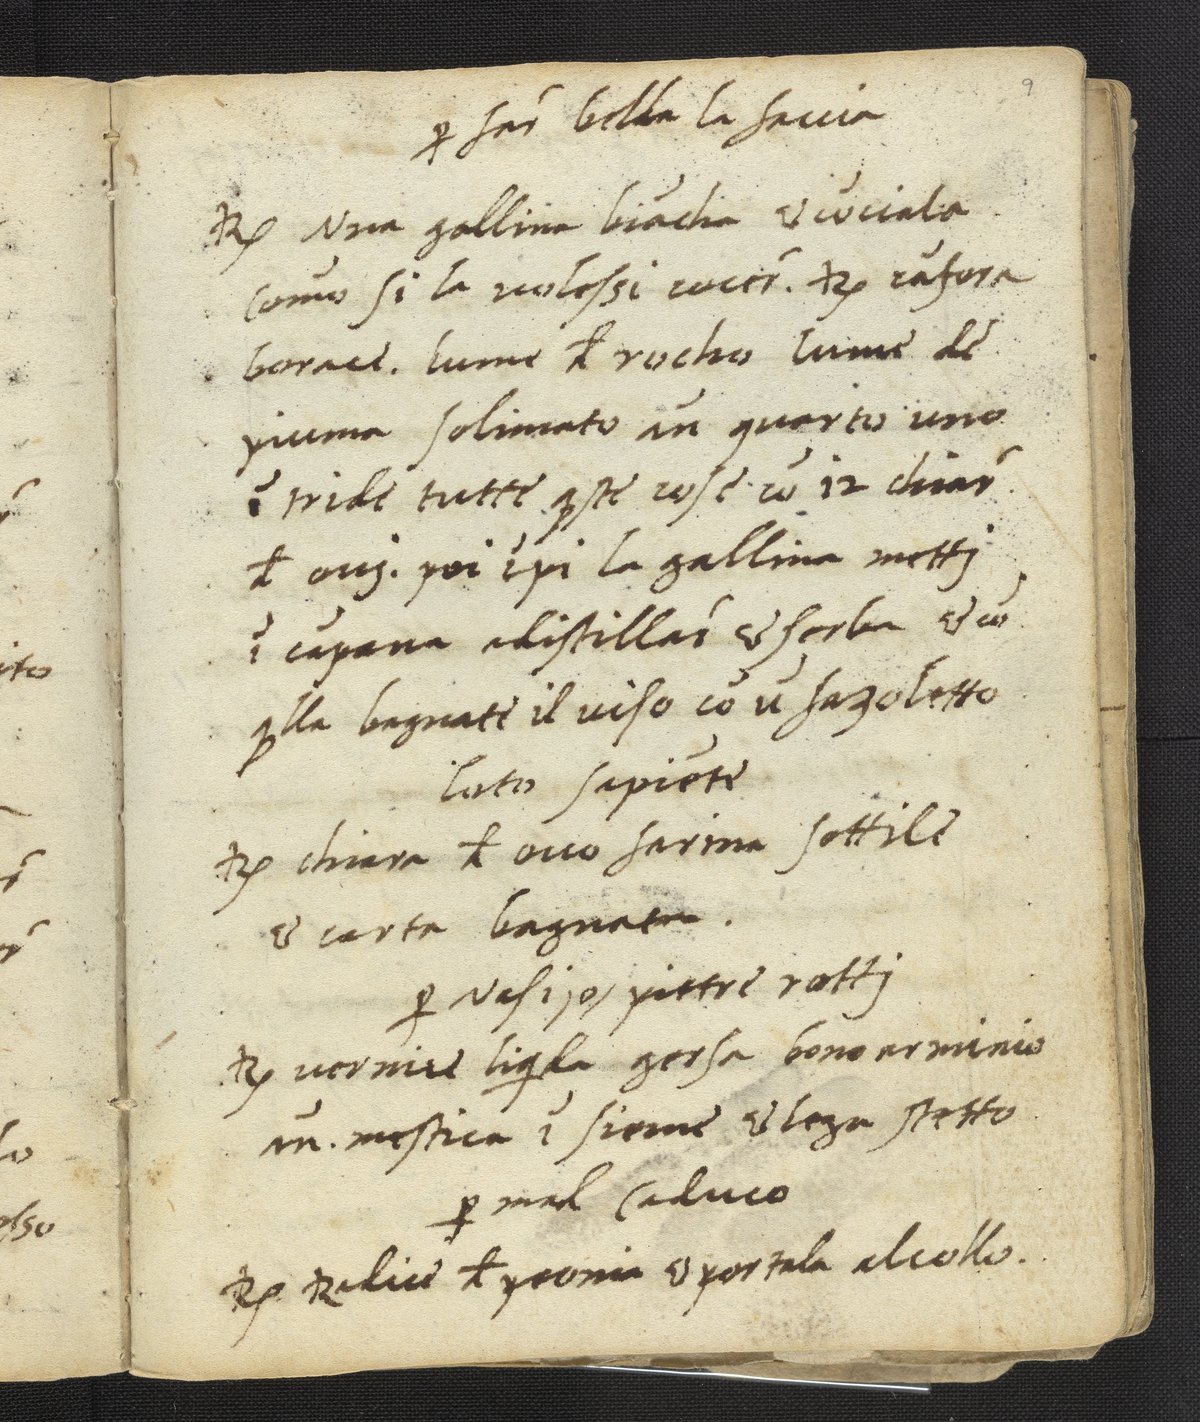 9
ꝑ far̄ bella la faccia
℞ Una gallina biācha & cōciala
como si la volessi cocer̄. ℞ cāfora
borace. lume đ rocho lume de
piuma solimato an̄ quarto uno
ī tride tutte q̄ste cose cō 12 chiar̄
đ ovj. poi īpi la gallina mettj
ī cāpana a distillar̄ & serba & cō
q̄lla bagnate il viso cō ū fazoletto
loto sapiēte
℞ chiara đ ovo farina sottile
& carta bagnata.
ꝑ vasi jo/ pietre rottj
℞ vernice liq̄da gersa bono arminio
an̄. mestica ī sieme & lega stetto
ꝑ mal caduco
℞ Radice đ peonia & portala al collo.
ito
lo